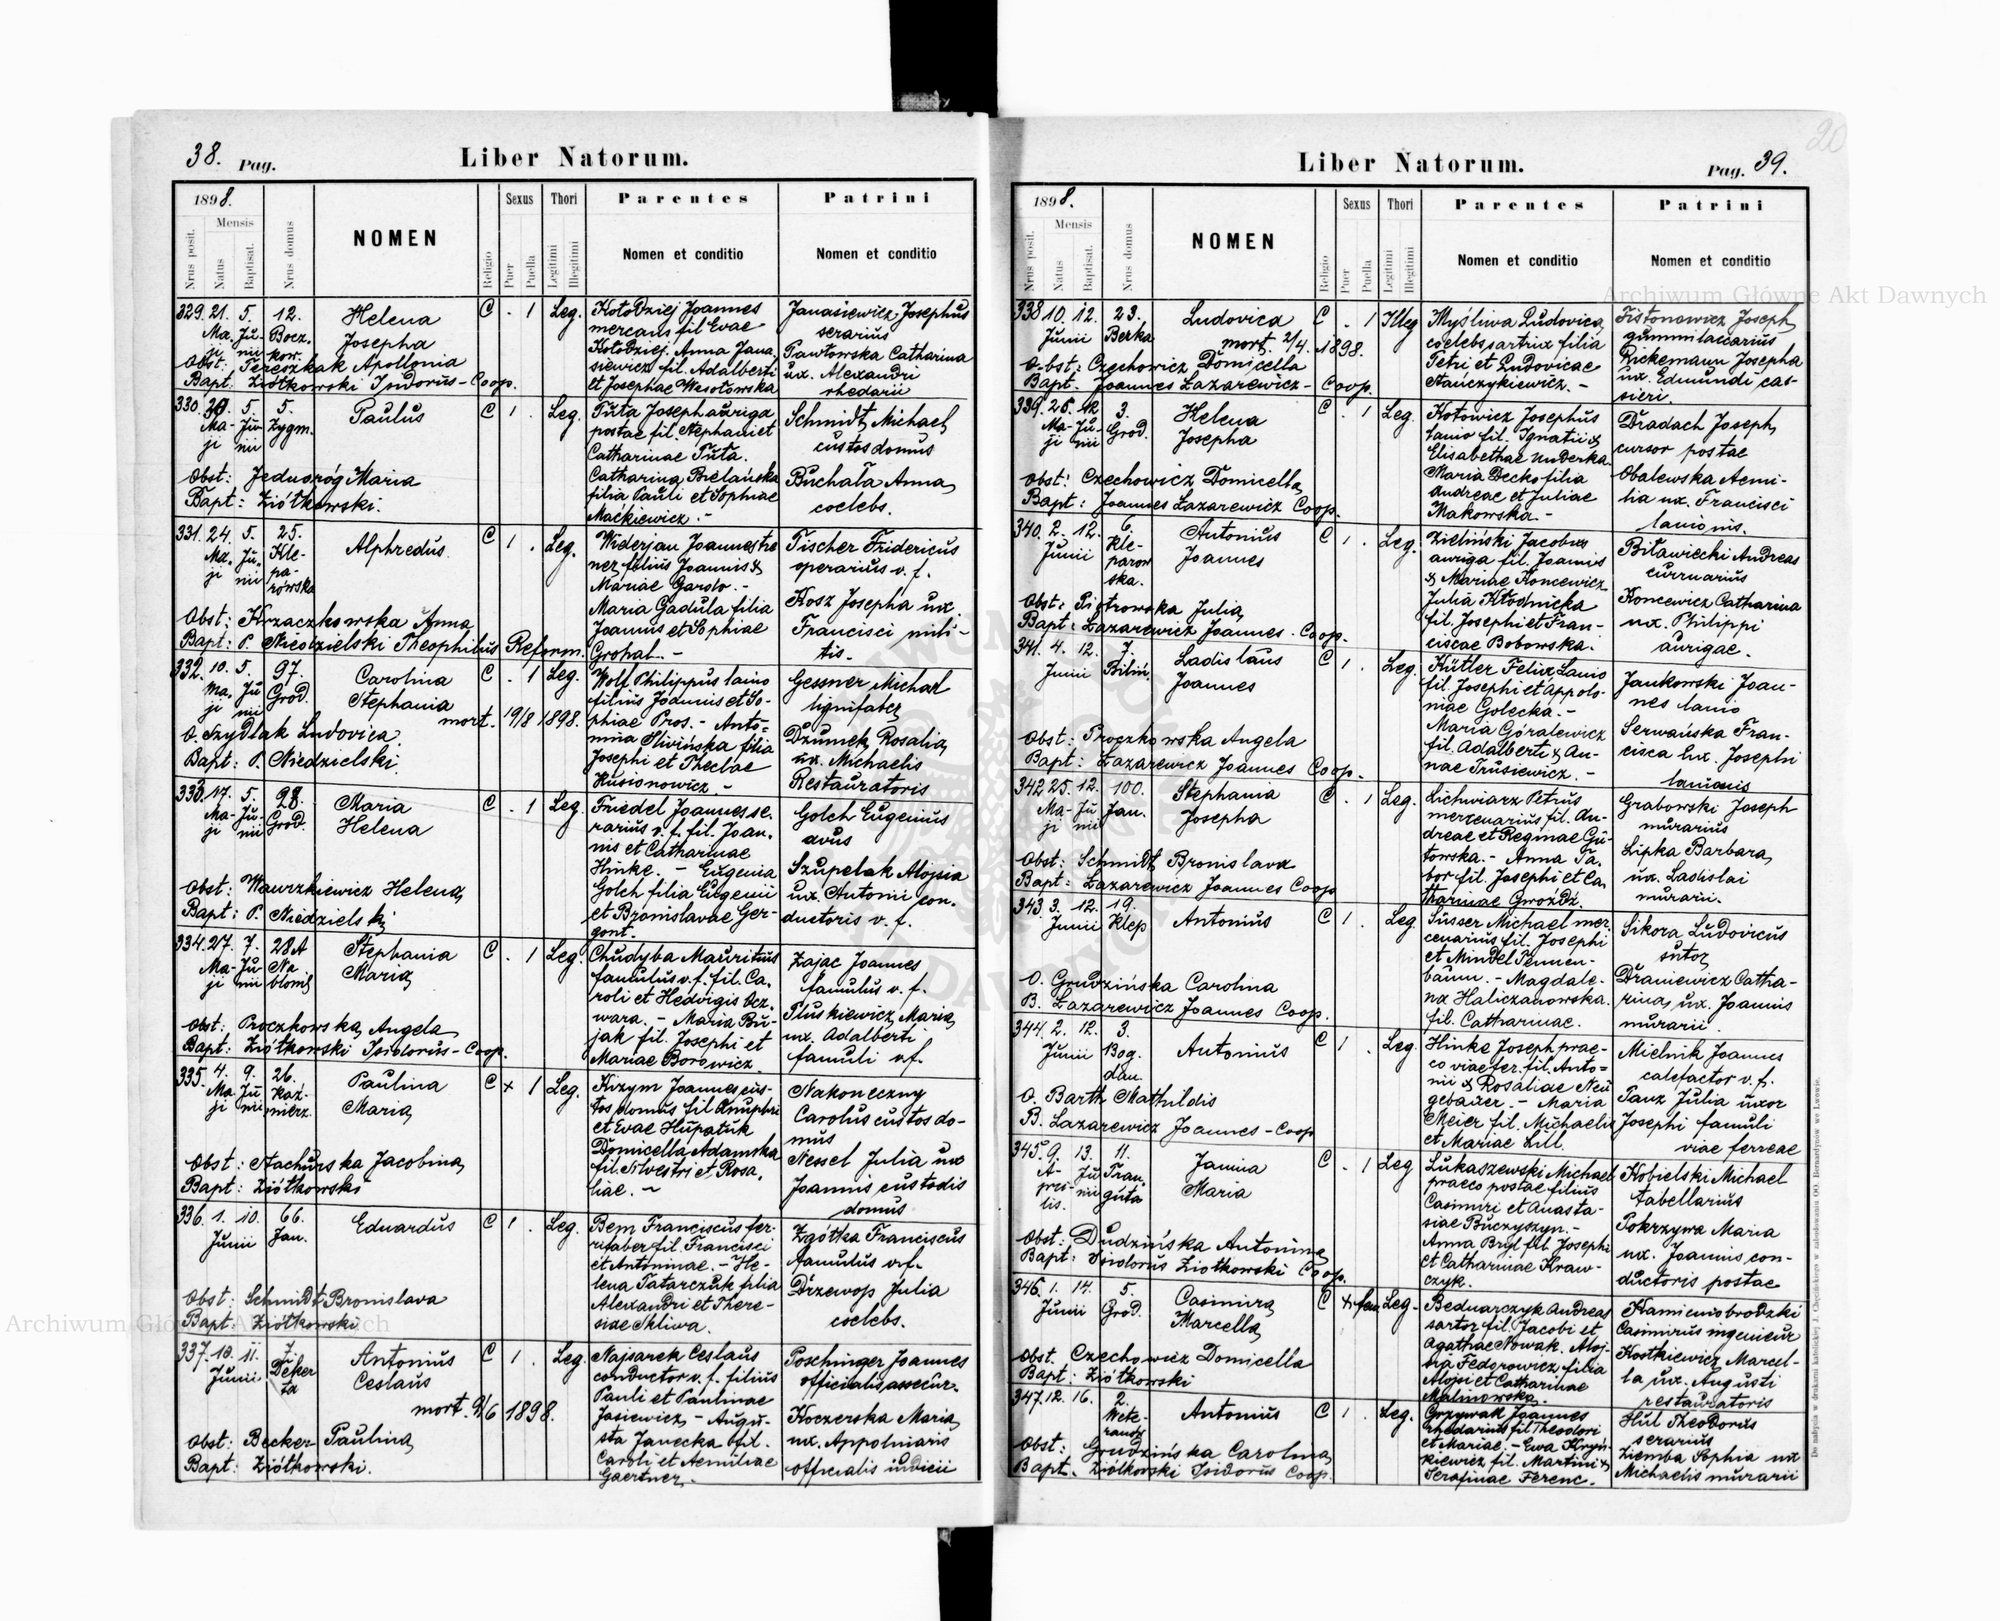 38. Pag.
Liber Natorum.
1898.
Nrus posit.
Mensis
Natus
Baptisat.
Nrus domus
NOMEN
Religio
Sexus
Puer
Puella
Thori
Legitimi
Illegitimi
Parentes
Nomen et conditio
Patrini
Nomen et conditio
329. 21. Maji 5. Junii 12. Helena Josepha C . 1 Leg.
Obst: Tereszkak Apollonia
Bapt: Ziółkowski Isidorus - Coop.
Kołodziej Joannes
fil Evae
Kołodziej. Anna Jana
siewicz fil. Adalberti
et Josephae Wesołowska
Janasiewicz Josephus
serarius
Pawłowska Catharina
ux. Alexandri
rhedarii
330. 5. Junii 5. Zygm. Paulus C 1 . Leg.
Obst: Jednoróg Maria
Bapt: Ziółkowski.
Tuta Joseph auriga
postae fil. Stephani et
Catharinae Tuta.
Catharina Bielańska
filia Pauli et Sophiae
Maćkiewicz. -
Schmidt Michael
custos domus
Buchała Anna
coelebs.
331. 24. Maji 5. Junii 25. Kleparowska Alphredus. C 1 . Leg.
Obst: Krzaczkowska Anna
Bapt: P. Niedzielski Theophilus Reform.
filius Joannis &
Mariae
Maria Gadula filia
Joannis et Sophiae
Tischer Fridericus
operarius v. f.
Kosz Josepha ux.
Francisci mili-
tis.
332. 10. Maji 5. Junii 97. Grod. Carolina Stephania C . 1 Leg.
mort. 19/8 1898.
O. Szydlak Ludovica.
Bapt: P. Niedzielski.
Wolf Philippus lanio
filius Joannis et So-
phiae Pros. - Anto-
nina Śliwińska filia
Josephi et Theclae
Kusionowicz. -
Gessner Michael
lignifaber
Dzumek Rosalia
ux. Michaelis
Restauratoris
333. 17. Maji 5. Junii 28. Grod. Maria Helena C . 1 Leg.
Obst: Wawrzkiewicz Helena
Bapt: P. Niedzielski
Friedel Joannes se-
rarius v. f. fil. Joan-
nis et Catharinae
Hinke. - Eugenia
Golch filia Eugenii
et Bronislavae Ger-
gont.
Golch Eugenius
avus
Szupelak Aloisia
ux. Antonii con-
ductoris v. f.
334. 27. Maji 7. Junii 28A Na błonie Stephania Maria C . 1 Leg.
Obst: Proczkowska Angela
Bapt: Ziółkowski Isidorus - Coop.
Chudyba Mauritius
famulus v. f. fil. Ca-
roli et Hedvigis Ocz-
wara. - Maria Bu-
jak fil. Josephi et
Mariae Borowicz
Zając Joannes
famulus v. f.
Pluskiewicz Maria
ux. Adalberti
famuli v.f.
335. 4. Maji 9. Junii 26. Kazimierz. Paulina Maria C x 1 Leg.
Obst: Stachurska Jacobina
Bapt: Ziółkowski
Kizym Joannes cus-
tos domus fil Onuphri
et Evae Hupatuk
Domicella Adamska
fil. Silvestri et Rosa-
liae. -
Nakoneczny
Carolus custos do-
mus
Nessel Julia ux
Joannis custodis
domus
336. 1. Junii 10. 66. Jan. Eduardus C 1 . Leg.
Obst: Schmidt Bronislava
Bapt: Ziółkowski
Bem Franciscus fer-
rifaber fil. Francisci
et Antoninae. - He-
lena Tatarczuk filia
Alexandri et There-
siae Skliwa.
Zgótka Franciscus
famulus v.f.
Drzewop Julia
coelebs.
337. 10. Junii 11. 7. Dekerta Antonius Ceslaus C 1 . Leg.
mort. 1898.
Obst: Becker Paulina
Bapt: Ziółkowski.
Najsarek Ceslaus
conductor v. f. filius
Pauli et Paulinae
Jasiewicz - Augu-
sta Janecka fil.
Caroli et Aemiliae
Gaertner.
Poschinger Joannes
officialis assecur.
Koczerska Maria
ux. Appolinaris
officialis iudicii
20
Liber Natorum.
Pag. 39.
1898.
Nrus posit.
Mensis
Natus
Baptisat.
Nrus domus
NOMEN
Religio
Sexus
Puer
Puella
Thori
Legitimi
Illegitimi
Parentes
Nomen et conditio
Patrini
Nomen et conditio
338 10. Junii 12. 23. Berka Ludovica C . 1 Illeg
mort. 2/4. 1898.
Obst: Czechowicz Domicella
Bapt. Joannes Łazarewicz - Coop.
Myśliwa Ludovica
coelebs sartrix filia
Petri et Ludovicae
Stańczykiewicz. -
Joseph
Rickemann Josepha
ux. Edmundi cas-
sieri.
339. 25. Maji 12 Junii 3. Grod. Helena Josepha C . 1 Leg.
Obst: Czechowicz Domicella
Bapt: Joannes Łazarewicz Coop.
Kotowicz Josephus
lanio fil. Ignatii &
Elisabethae
Maria Decko filia
Andreae et Juliae
Makowska. -
Dradach Joseph
cursor postae
Obalewska Aemi-
lia ux. Francisci
lanionis.
340. 2. Junii 12. 6. Kleparowska. Antonius Joannes C 1 . Leg.
Obst: Piotrowska Julia
Bapt: Łazarewicz Joannes. Coop.
Zieliński Jacobus
auriga fil. Joannis
& Mariae Koncewicz
Julia Kłodnicka
fil. Josephi et Fran-
ciscae Bobowska.
Biławiecki Andreas
currarius
Koncewicz Catharina
ux. Philippi
aurigae.
341. 4. Junii 12. 7. Bilin. Ladislaus Joannes C 1 . Leg.
Obst: Proczkowska Angela
Bapt: Łazarewicz Joannes Coop.
Küttler Felix lanio
fil. Josephi et Appolo-
niae Golecka. -
Maria Góralewicz
fil. Adalberti & An-
nae Trusiewicz. -
Jankowski Joan-
nes lanio
Serwańska Fran-
cisca ux. Josephi
lanionis
342 25. Maji 12. Junii 100. Jan. Stephania Josepha C . 1 Leg.
Obst: Schmidt Bronislava
Bapt: Łazarewicz Joannes Coop
Lichwiarz Petrus
mercenarius fil. An-
dreae et Reginae Gu-
towska. - Anna Ta-
bor fil. Josephi et Ca
tharinae Gwoźdź.
Grabowski Joseph
murarius
Lipka Barbara
ux. Ladislai
murarii.
343 3. Junii 12. 19. Klep Antonius C 1 . Leg
O. Grudzińska Carolina
B. Łazarewicz Joannes Coop.
Süsser Michael mer-
cenarius fil. Josephi
et Mindel Tennen-
baum. - Magdale-
na Haliczanowska.
fil. Catharinae.
Sikora Ludovicus
sutor
Draniewicz Catha-
rina ux. Joannis
murarii.
344. 2. Junii 12. 3. Bogdan. Antonius C 1 . Leg.
O. Barth Mathildis
B. Łazarewicz Joannes - Coop
Hinke Joseph prae-
co viae fer. fil. Anto-
nii & Rosaliae Neu
gebauer. - Maria
Meier fil. Michaelis
et Mariae Lill.
Mielnik Joannes
calefactor v. f.
Panz Julia uxor
Josephi famuli
viae ferreae
345. 9. Aprilis. 13. Junii 11. Janina Maria C . 1 Leg
Obst: Dudzińska Antonina
Bapt: Isidorus Ziółkowski Coop.
Łukaszewski Michael
praeco postae filius
Casimiri et Anasta-
siae Buczyszyn. -
Anna Bryl fil. Josephi
et Catharinae Kraw-
czyk.
Kobielski Michael
tabellarius
Pokrzywa Maria
ux. Joannis con-
ductoris postae
346. 1. Junii 14. 5. Grod. Casimira Marcella C x fem. Leg.
Obst. Czechowicz Domicella
Bapt: Ziółkowski
Bednarczyk Andreas
sartor fil. Jacobi et
Agathae Nowak. Aloj-
sia Fedorowicz filia
Alojsi et Catharinae
Malinowska.
Kamieniobrodzki
Casimirus ingenieur
Kostkiewicz Marcel-
la ux. Augusti
restauratoris
347. 12. 16. 2. Weteranów Antonius C 1 . Leg.
Obst: Grudzińska Carolina
Bapt. Ziółkowski Isidorus Coop.
Grzywak Joannes
rhedarius fil Theodori
et Mariae. - Ewa
kiewicz fil. Martini &
Serafinae Ferenc. -
Hul Theodorus
serarius
Ziemba Sophia ux
Michaelis murarii
Do nabycia w drukarni katolickiej J. Chęcińskiego w zabudowaniu OO. Bernardynów we Lwowie.
Archiwum Główne Akt Dawnych
Archiwum Główne Akt Dawnych